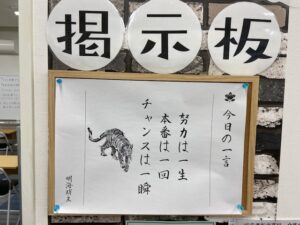 掲示板
今日の一言
努力は一生
本番は一回
チャンスは一瞬